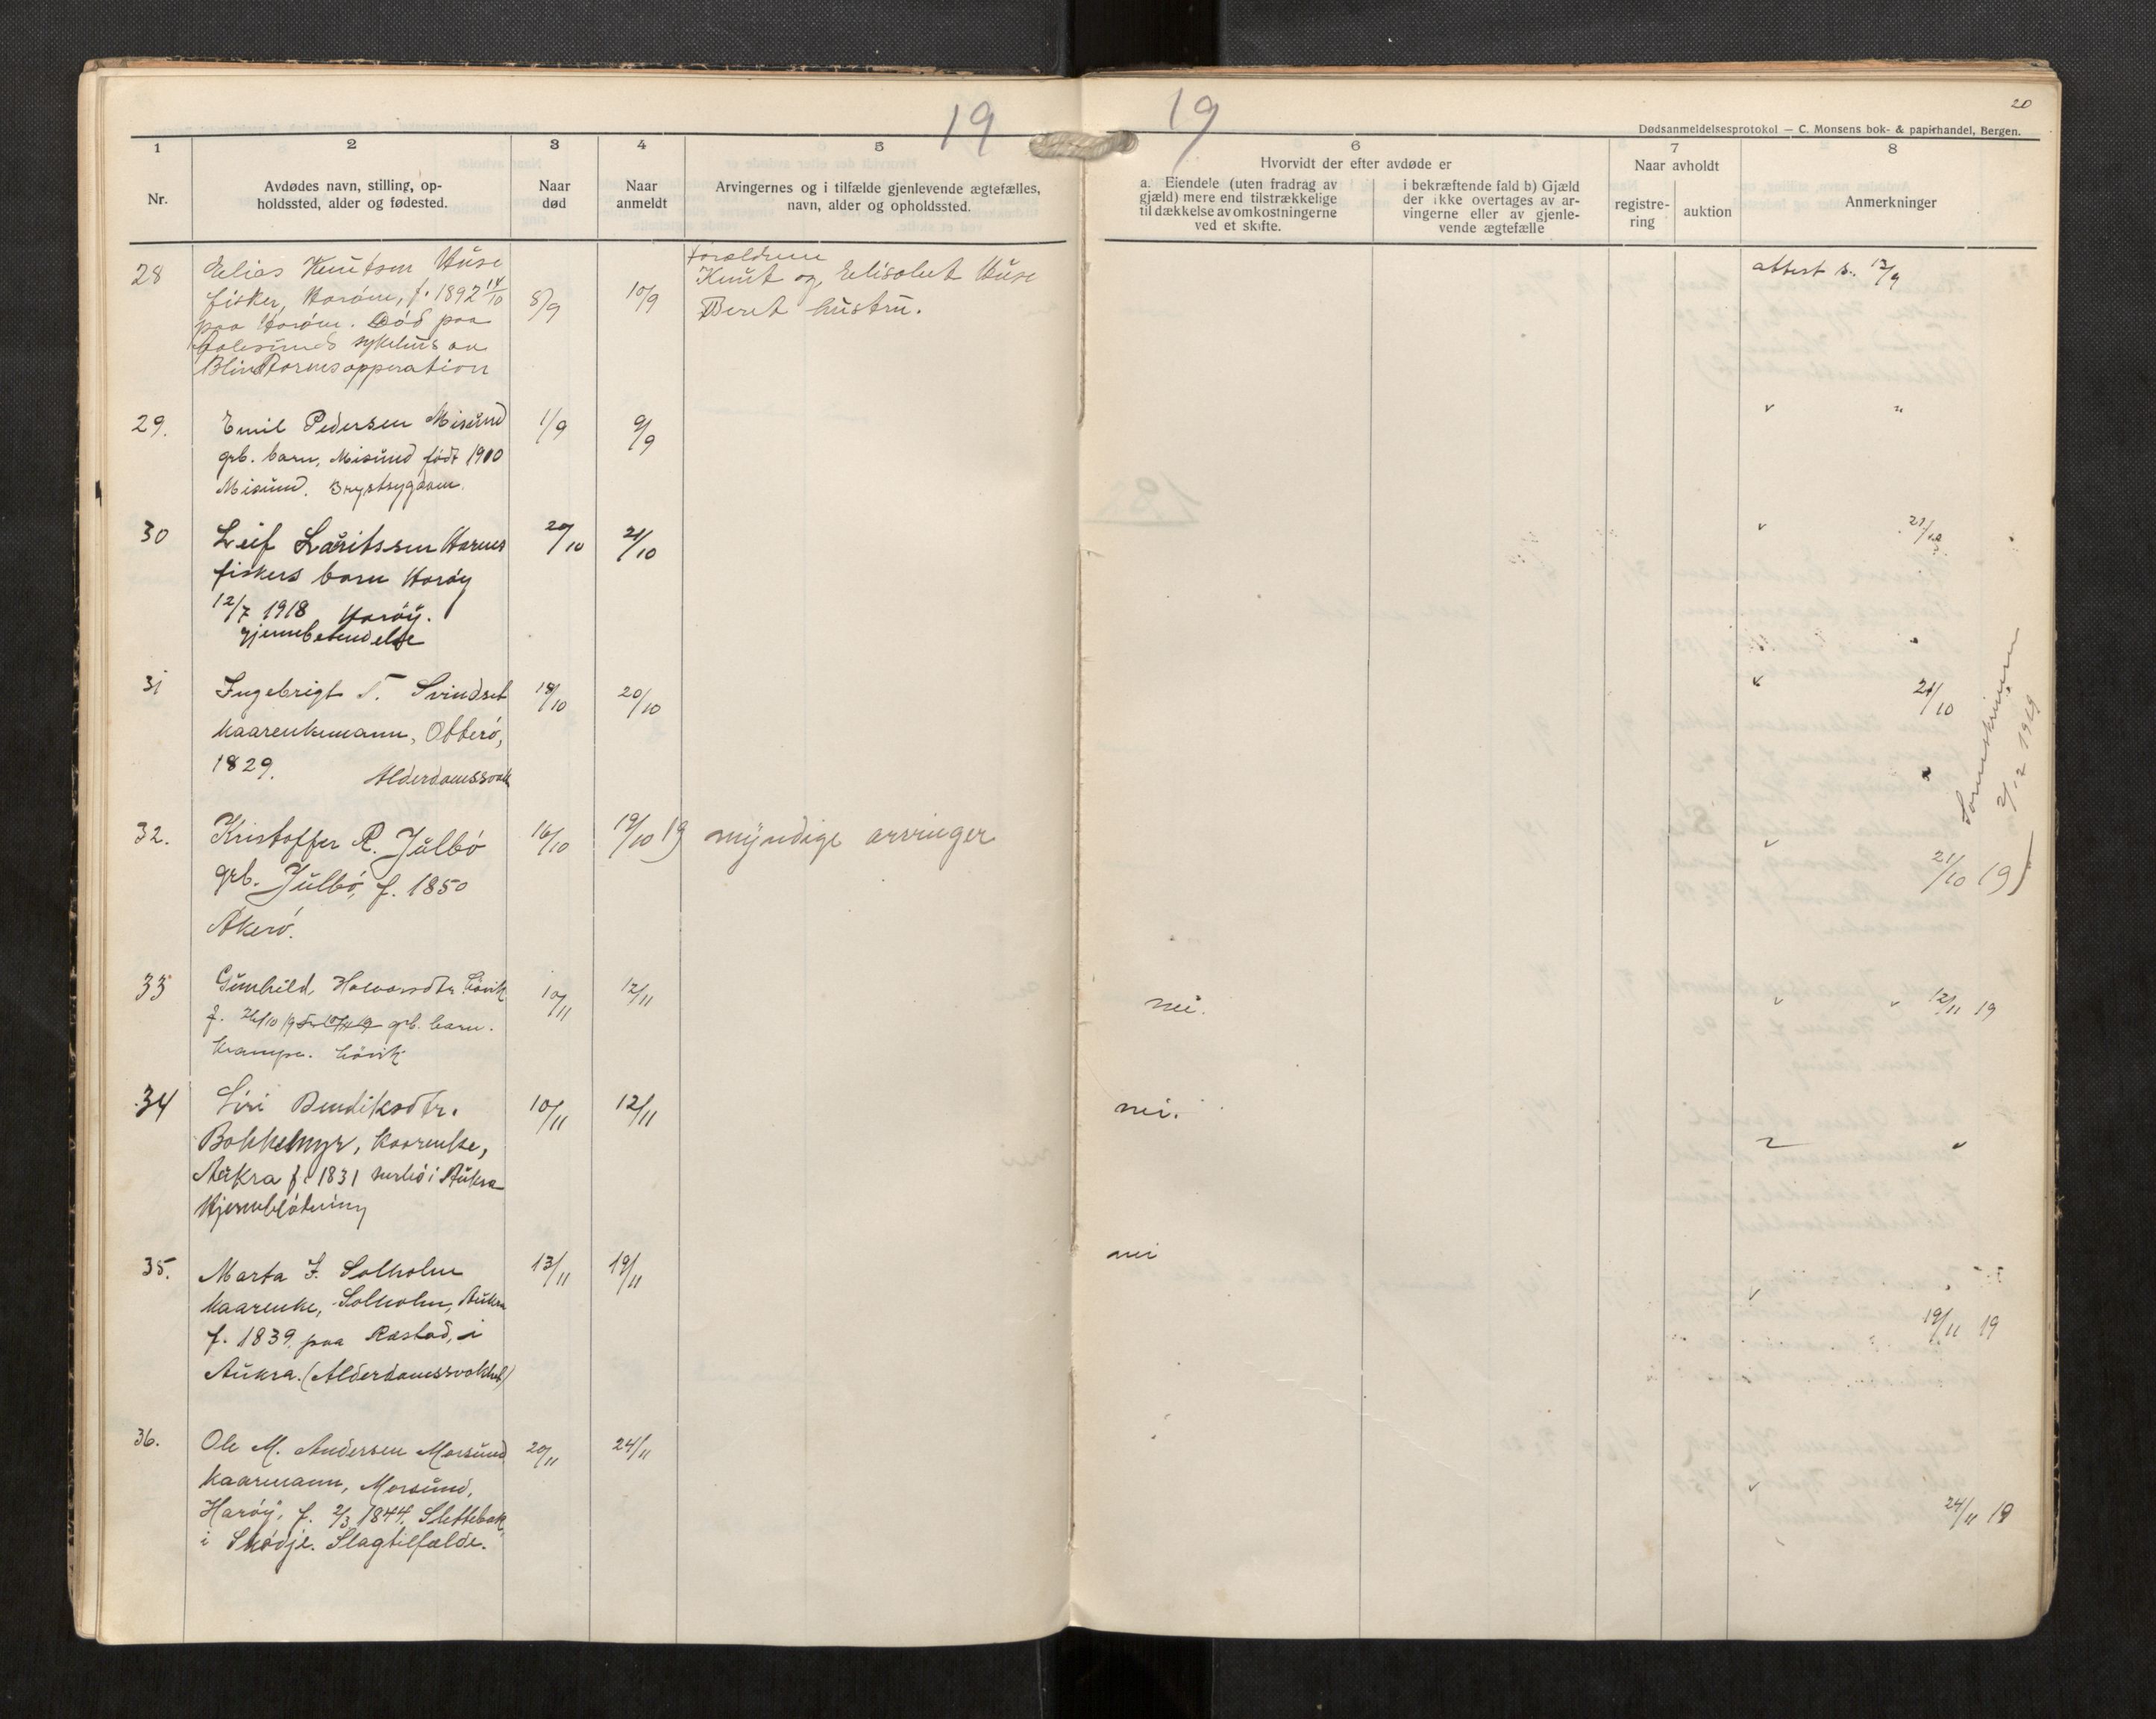 19
19
20
Dødsanmeldelsesprotokol — C. Monsens bok- & papirhandel, Bergen.
1 2 3 4 5 6 7 8
Nr.
Avdødes navn, stilling, op-
holdssted, alder og fødested.
Naar
død
Naar
anmeldt
Arvingernes og i tilfælde gjenlevende ægtefælles,
navn, alder og opholdssted.
Hvorvidt der efter avdøde er
a. Eiendele (uten fradrag av
gjæld) mere end tilstrækkelige
til dækkelse av omkostningerne
ved et skifte.
i bekræftende fald b) Gjæld
der ikke overtages av ar-
vingerne eller av gjenle-
vende ægtefælle
Naar avholdt
registre-
ring
auktion
Anmerkninger
28 Elias Knutsen Huse 8/9 10/9 forældrene
Knut og Elisabet Huse attest s. 12/9
fisker, Harøen, f. 1892 14/10 Beret hustru.
paa Harøen. Død paa
Aalesunds sykehus av
Blindtarmsopperation
29. Emil Pedersen Misund 1/9 9/9 " "
grb. barn, Misund født 1910
Misund. Brystsygdom.
30 Leif Lauritssen Harnes 20/10 21/10 " 21/10
fiskers barn Harøy
12/7 1918 Harøy.
Hjernebetendelse
31 Ingebrigt T. Svindset 18/10 20/10 " 21/10
kaarenkemann, Otterø,
1829. Alderdomssvak
Sorenskriveren
2/12 1919
32. Kristoffer R. Julbø 16/10 19/10 19 myndige arvinger " 21/10 19
grb. Julbø, f. 1850
Akerø.
33 Gunhild Halvorsdtr. Løvik 10/11 12/11 nei. " " 12/11 19
grb. barn.
Krampe. Løvik
34 Siri Bendiksdtr. 10/11 12/11 nei. " "
Bakkemyr, kaarenke,
Aukra f. 1831 i Aukra
Hjerneblødning
35. Marta J. Solholm 13/11 19/11 nei " 19/11 19
kaarenke, Solholm, Aukra
f. 1839 paa Rastad, i
Aukra. (Alderdomssvakhet)
36. Ole M. Andersen Morsund 20/11 24/11 " 24/11 19
kaarmann, Morsund,
Harøy, f. 2/3 1844. Slettebak
i Skodje. Slagtilfælde.